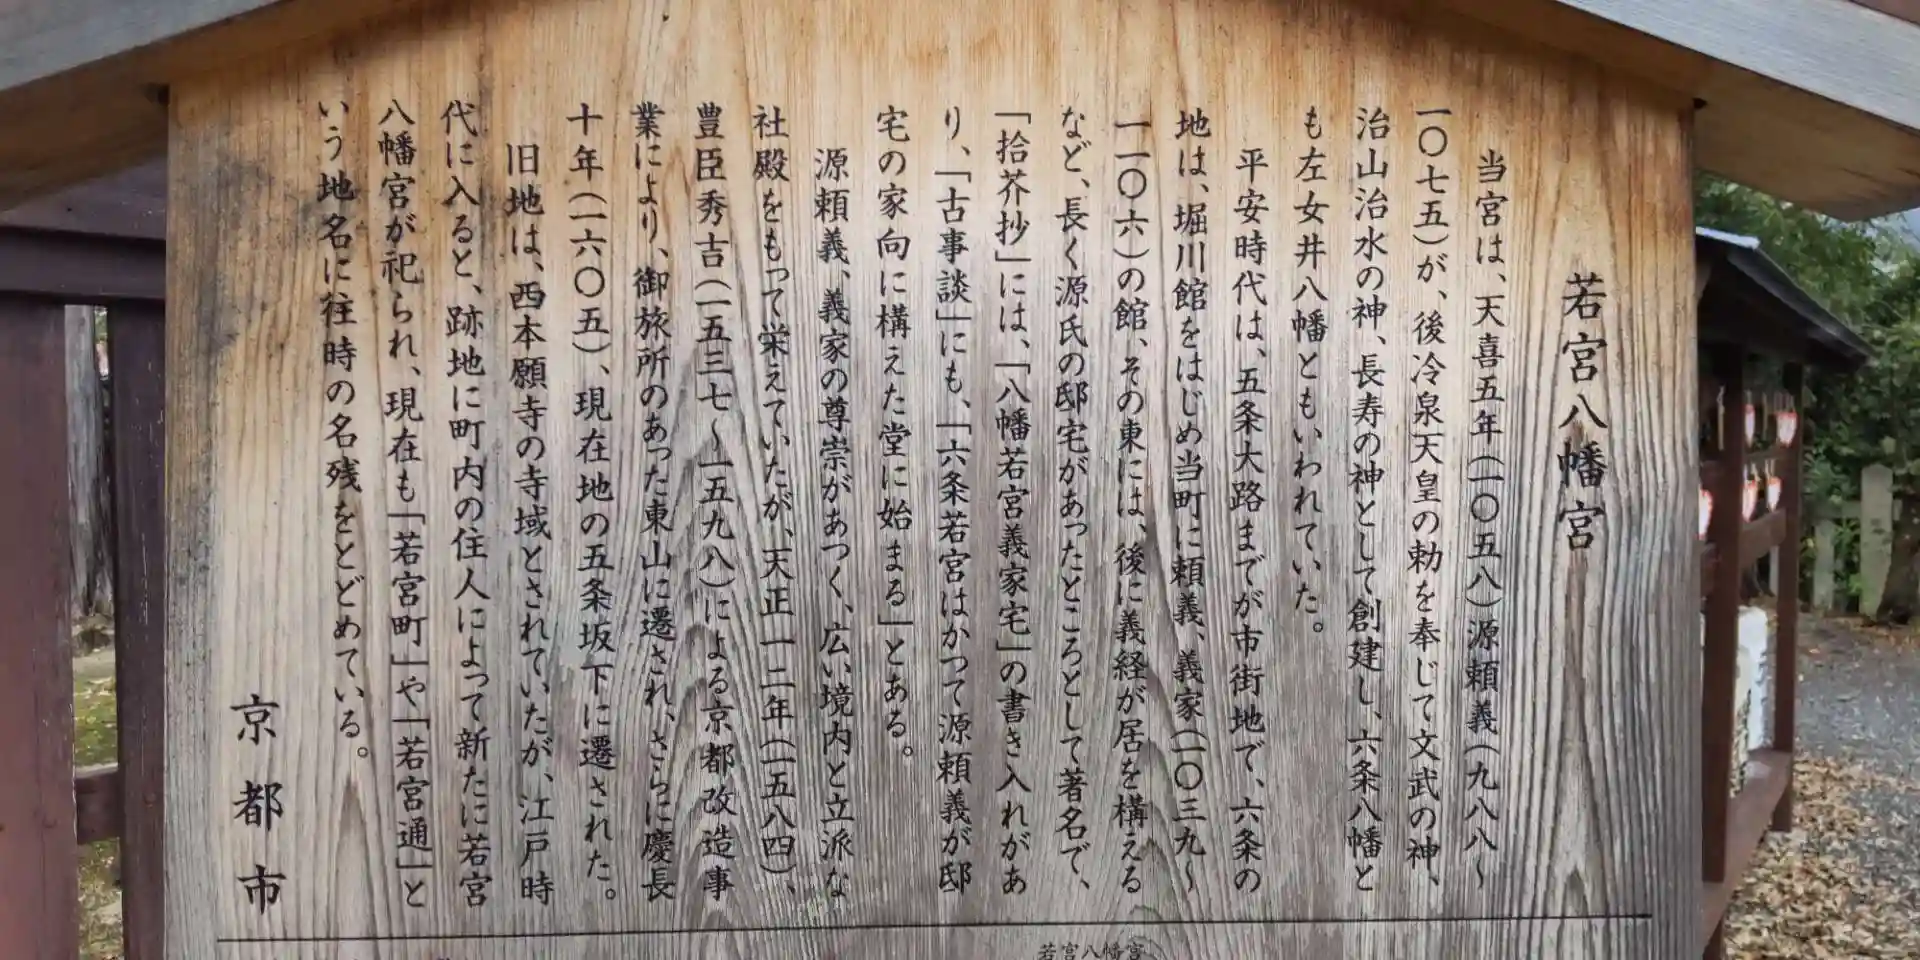 若宮八幡宮
当宮は、天喜五年(一〇五八)源頼義(九八八〜
一〇七五)が、後冷泉天皇の勅を奉じて文武の神、
治山治水の神、長寿の神として創建し、六条八幡と
も左女井八幡ともいわれていた。
平安時代は、五条大路までが市街地で、六条の
地は、堀川館をはじめ当町に頼義、義家(一〇三九〜
一一〇六)の館、その東には、後に義経が居を構える
など、長く源氏の邸宅があったところとして著名で、
「拾芥抄」には、「八幡若宮義家宅」の書き入れがあ
り、「古事談」にも、「六条若宮はかつて源頼義が邸
宅の家向に構えた堂に始まる」とある。
源頼義、義家の尊崇があつく、広い境内と立派な
社殿をもって栄えていたが、天正一二年(一五八四)、
豊臣秀吉(一五三七〜一五九八)による京都改造事
業により、御旅所のあった東山に遷され、さらに慶長
十年(一六〇五)、現在地の五条坂下に遷された。
旧地は、西本願寺の寺域とされていたが、江戸時
代に入ると、跡地に町内の住人によって新たに若宮
八幡宮が祀られ、現在も「若宮町」や「若宮通」と
いう地名に往時の名残をとどめている。
京都市
若宮八幡宮